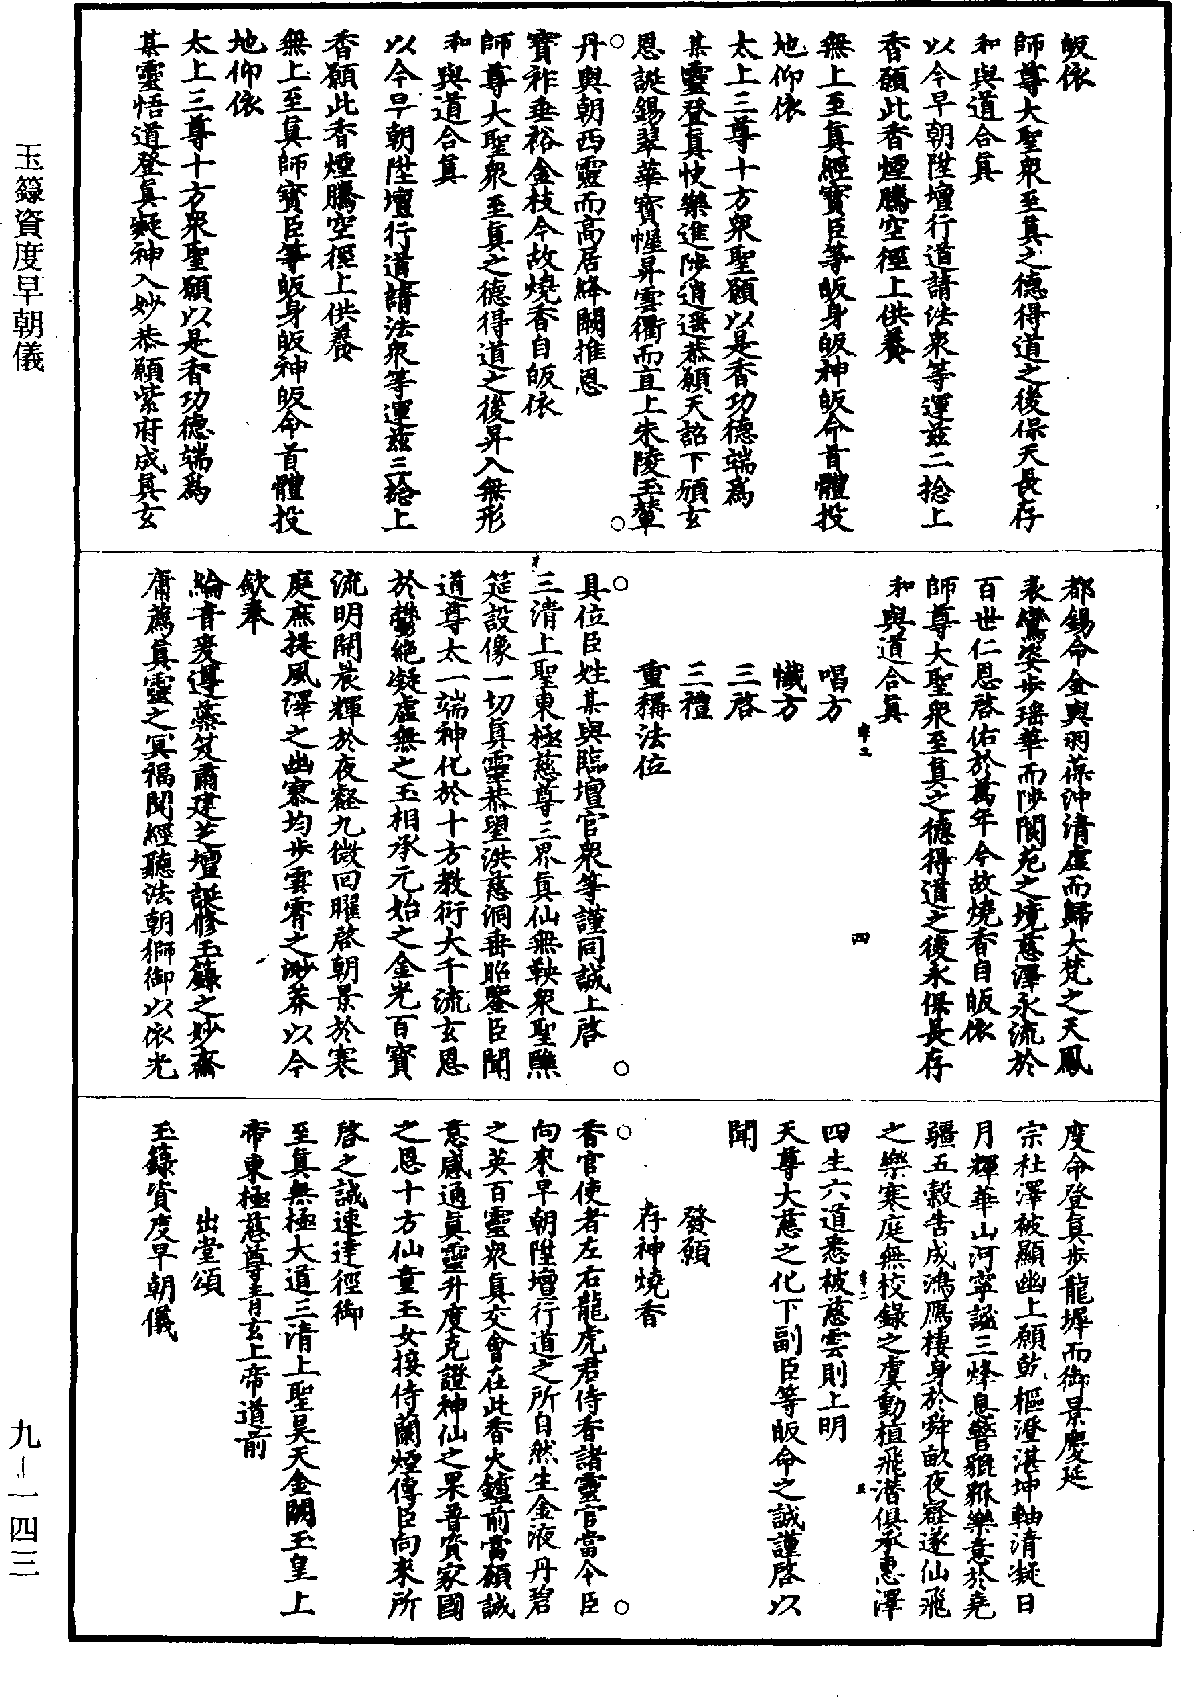 玉籙資度早朝儀
九—一四三
皈依
師尊大聖衆至真之德得道之後保天長存
和與道合真
以今早朝陞壇行道請法衆等運茲二捻上
香願此香煙騰空徑上供養
無上至真經寶臣等皈身皈神皈命首體投
地仰依
太上三尊十方衆聖願以是香功德端爲
某靈登真快樂進陟逍遥恭願天詔下頒玄
恩誕錫翠華寶幄昇雲衢而直上朱陵玉輦
丹輿朝西靈而高居絳闕推恩
寶祚垂裕金枝今故燒香自皈依
師尊大聖衆至真之德得道之後昇入無形
和與道合真
以今早朝陞壇行道請法衆等運茲三捻上
香願此香煙騰空徑上供養
無上至真師寶臣等皈身皈神皈命首體投
地仰依
太上三尊十方衆聖願以是香功德端爲
某靈悟道登真凝神入妙恭願紫府成真玄
都錫命金輿羽葆沖清虛而歸大梵之天鳳
表鸞姿步瑤華而陟閬苑之境慈澤永流於
百世仁恩啓佑於萬年今故燒香自皈依
師尊大聖衆至真之德得道之後永保長存
和與道合真
唱方
懺方
三啓
三禮
重稱法位
具位臣姓某與臨壇官衆等謹同誠上啓
三清上聖東極慈尊三界真仙無鞅衆聖醮
筵設像一切真靈恭望洪慈洞垂昭鑒臣聞
道尊太一端神化於十方教衍大千流玄恩
於鬱絕凝虛無之玉相承元始之金光百寶
流明開晨輝於夜壑九微回曜啓朝景於寒
庭庶提風澤之幽寮均步雲霄之渺莽以今
欽奉
綸音爰遵藥笈肅建芝壇誕修玉籙之妙齋
庸薦真靈之冥福聞經聽法朝獅御以依光
度命登真步龍墀而御景慶延
宗社澤被顯幽上願乾樞澄湛坤軸清凝日
月輝華山河寧謐三烽息警貔貅樂意於堯
疆五穀告成鴻鴈棲身於舜畝夜壑遂仙飛
之樂寒庭無校錄之虞動植飛潛俱承惠澤
四生六道悉被慈雲則上明
天尊大慈之化下副臣等皈命之誠謹啓以
聞
發願
存神燒香
香官使者左右龍虎君侍香諸靈官當令臣
向來早朝陞壇行道之所自然生金液丹碧
之英百靈衆真交會在此香火鑪前當願誠
意感通真靈升度克證神仙之果普資家國
之恩十方仙童玉女接侍蘭煙傳臣向來所
啓之誠速達徑御
至真無極大道三清上聖昊天金闕玉皇上
帝東極慈尊青玄上帝道前
出堂頌
玉籙資度早朝儀